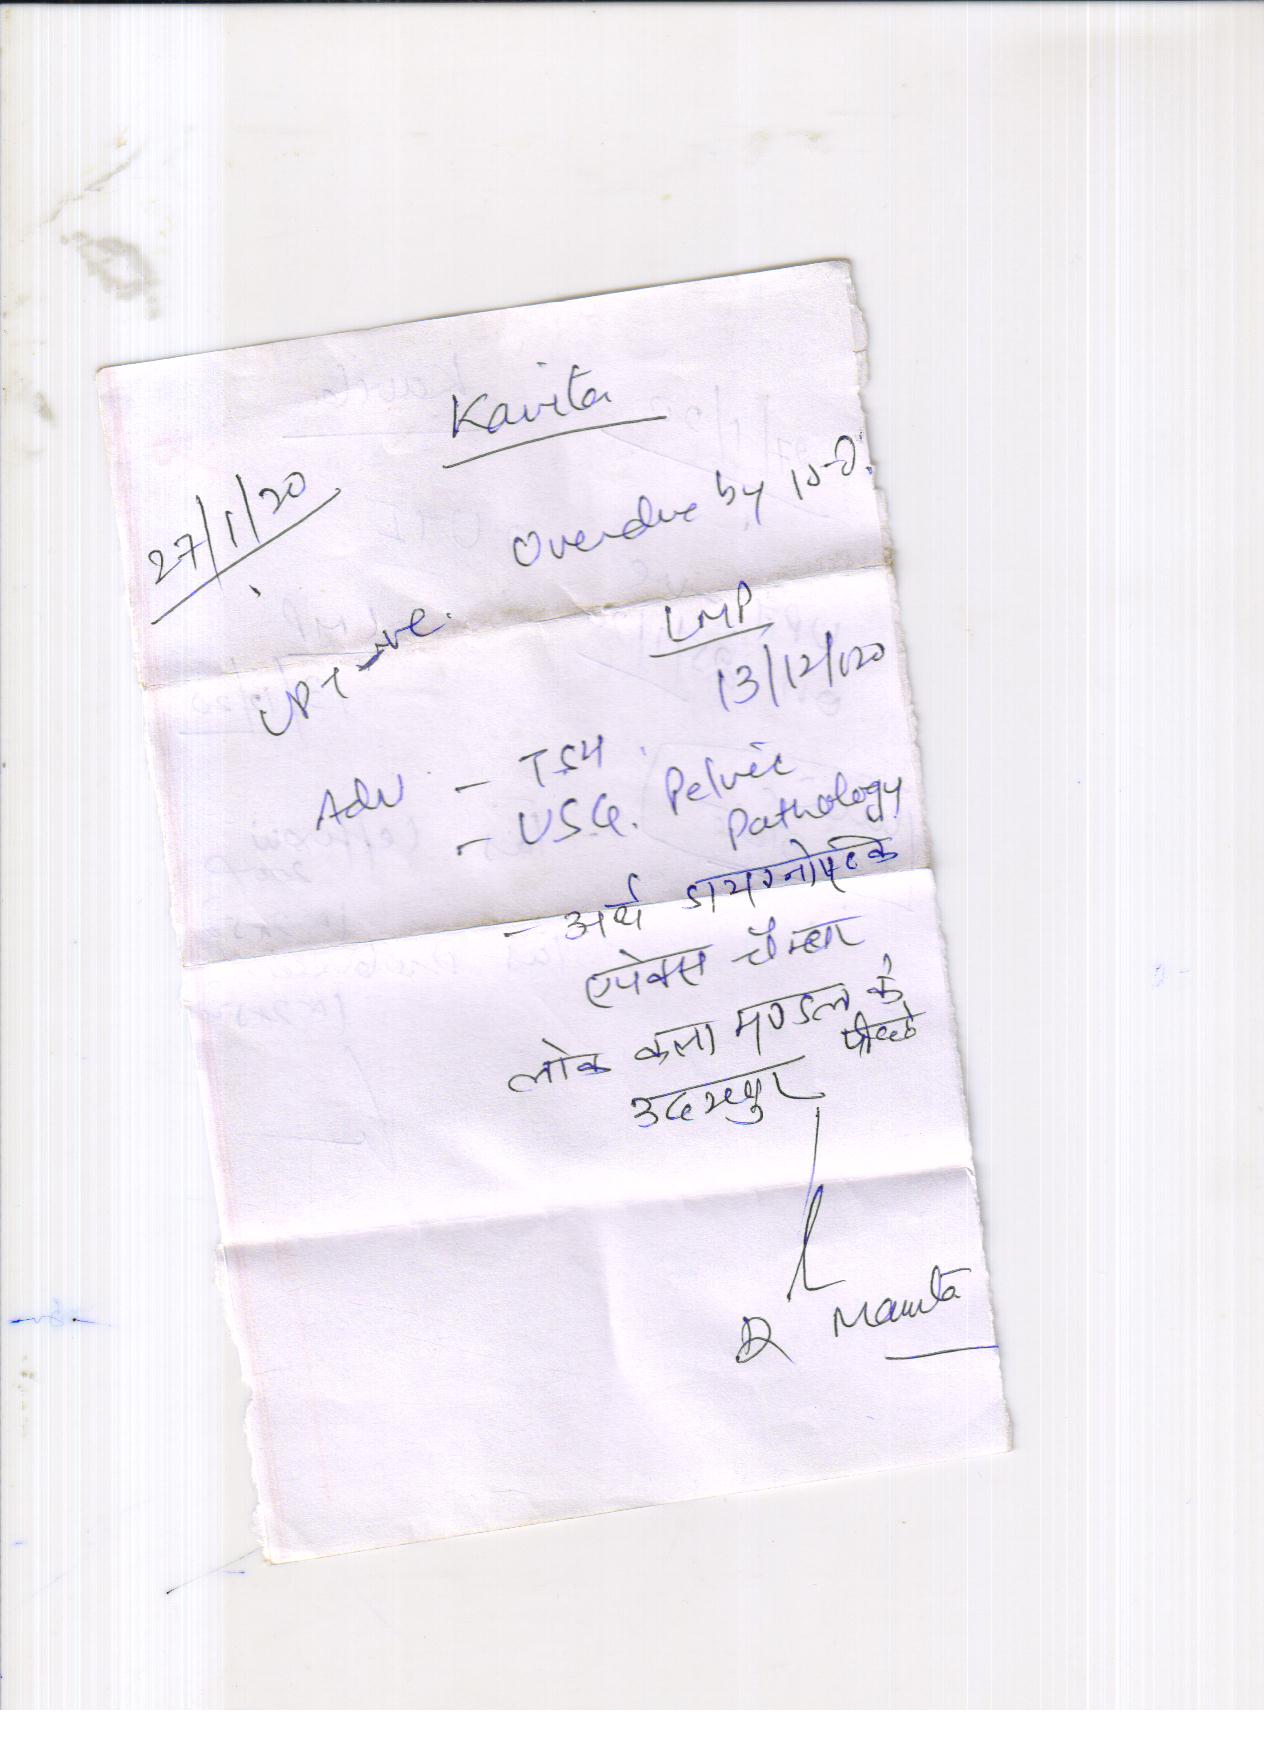 Kavita
27/1/20
Overdue by 10-D.
UPT -ve.
LMP
13/12/20
Adv - TSH
- USG. Pelvic
Pathology
- अर्थ डायग्नोस्टिक
एपेक्स चैम्बर
लोक कला मण्डल के
पीछे
उदयपुर
Dr Mamta